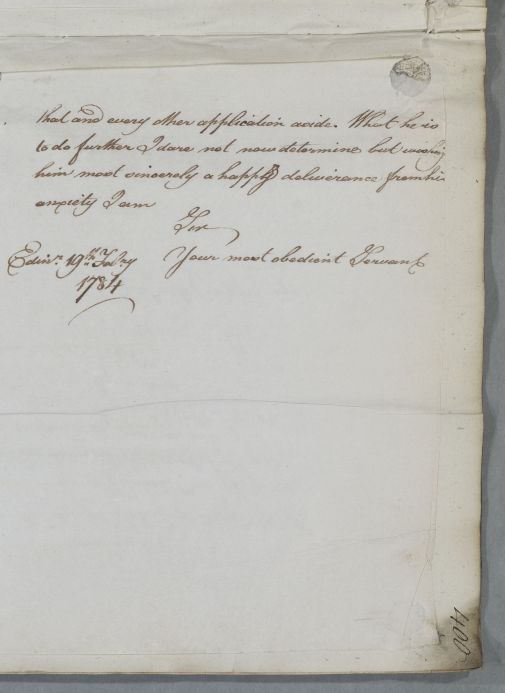 that and every other application aside. What he is
to do further I dare not now determine but wishing
him most sincerely a happy deliverance from his
anxiety I am
Sir
Your most obedient Servant
Edinr. 19th Febry
1784
400